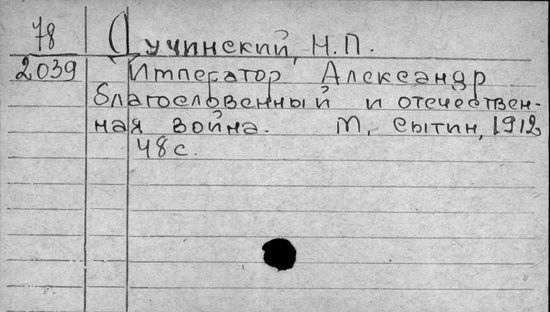 78
Дучинский, Н.П.
2039
Император Александр
благословенный и отечествен-
ная война. М, Сытин, 1912
48с.